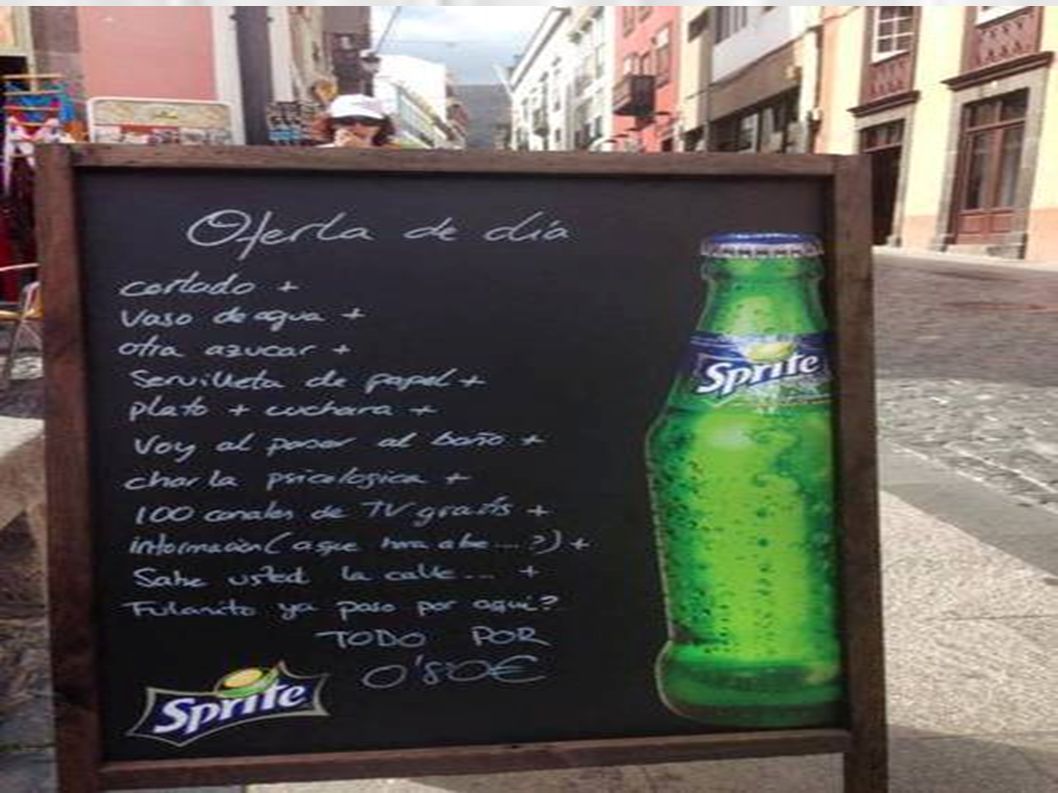 Oferta de día
cortado +
Vaso de agua +
otra azucar +
Servilleta de papel +
plato + cuchara +
Voy al pasar al baño +
charla psicologica +
100 canales de TV gratis +
información (a que hora abe...?) +
Sabe usted la calle... +
Fulanito ya paso por aqui?
TODO POR
0'80€
Sprite
Sprite